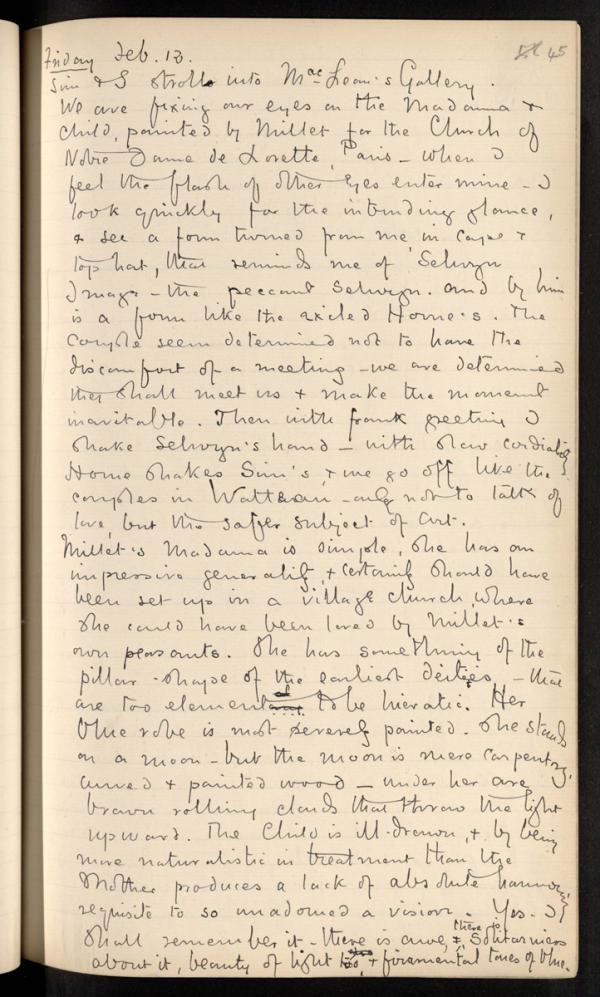 45
Friday Feb. 13.
Sim & I stroll into Mac Lean's Gallery.
We are fixing our eyes on the Madonna &
Child, painted by Millet for the Church of
Notre Dame de Lorette, Paris – when I
feel the flash of other eyes enter mine – I
look quickly for the intruding glance,
& see a form turned from me in cape &
top hat, that reminds me of Selwyn
Image – the peccant Selwyn. and by him
is a form like the exiled Horne's. The
couple seem determined not to have the
discomfort of a meeting – we are determined
they shall meet us & make the moment
inevitable. Then with frank greeting I
shake Selwyn's hand – with slow cordiality
Horne shakes Sim's, & we go off like the
couples in Watteau – only not to talk of
love, but the safer subject of Art.
Millet's Madonna is simple, she has an
impressive generality, & certainly should have
been set up in a village church, where
she could have been loved by Millet's
own peasants. She has something of the
pillar-shape of the earliest deities – that
are too elemental to be hieratic. Her
blue robe is most severely painted. She stands
on a moon – but the moon is mere carpentry,
curved & painted wood – under her are
brown rolling clouds that throw the light
upward. The Child is ill-drawn, & by being
more naturalistic in treatment than the
Mother produces a lack of absolute harmony,
requisite to so unadorned a vision. Yes – I
shall remember it – there is awe, & there is solitariness
about it, beauty of light & firmamental tones of blue.